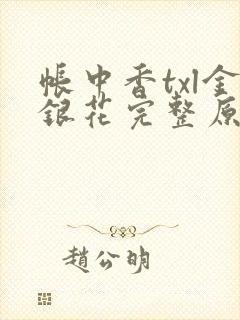 帳中香txl金
銀花完整原
趙公明